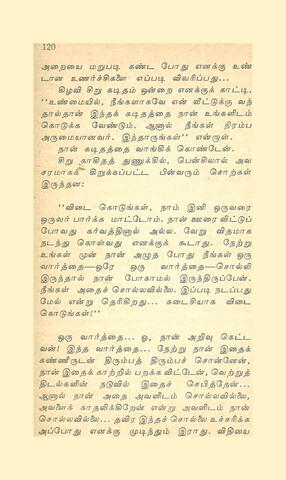 120
அறையை மறுபடி கண்ட போது எனக்கு உண்
டான உணர்ச்சிகளை எப்படி விவரிப்பது...
கிழவி சிறு கடிதம் ஒன்றை எனக்குக் காட்டி,
‘‘உண்மையில், நீங்களாகவே என் வீட்டுக்கு வந்
தால்தான் இந்தக் கடிதத்தை நான் உங்களிடம்
கொடுக்க வேண்டும். ஆனால் நீங்கள் நிரம்ப
அருமையானவர். இந்தாருங்கள்’’ என்ழுள்.
நான் கடிதத்தை வாங்கிக் கொண்டேன்.
சிறு காகிதத் துணுக்கில், பென்சிலால் அவ
சரமாகக் கிறுக்கப்பட்ட பின்வரும் சொற்கள்
இருந்தன:
‘‘விடை கொடுங்கள், நாம் இனி ஒருவரை
ஒருவர் பார்க்க மாட்டோம். நான் ஊரை விட்டுப்
போவது கர்வத்தினால் அல்ல. வேறு விதமாக
நடந்து கொள்வது எனக்குக் கூடாது. நேற்று
உங்கள் முன் நான் அழுத போது நீங்கள் ஒரு
வார்த்தை—ஒரே ஒரு வார்த்தை—சொல்லி
இருந்தால் நான் போகாமல் இருந்திருப்பேன்.
நீங்கள் அதைச் சொல்லவில்லை. இப்படி நடப்பது
மேல் என்று தெரிகிறது... கடைசியாக விடை
கொடுங்கள்!’’
ஒரு வார்த்தை... ஓ, நான் அறிவு கெட்ட
வன்! இந்த வார்த்தை... நேற்று நான் இதைக்
கண்ணீருடன் திரும்பத் திரும்பச் சொன்னேன்,
நான் இதைக் காற்றில் பறக்க விட்டேன், வெற்றுத்
திடல்களின் நடுவில் இதைச் செபித்தேன்...
ஆனால் நான் அதை அவளிடம் சொல்லவில்லை,
அவளைக் காதலிக்கிறேன் என்று அவளிடம் நான்
சொல்லவில்லை... தவிர இந்தச் சொல்லை உச்சரிக்க
அப்போது எனக்கு முடிந்தும் இராது. விதியை